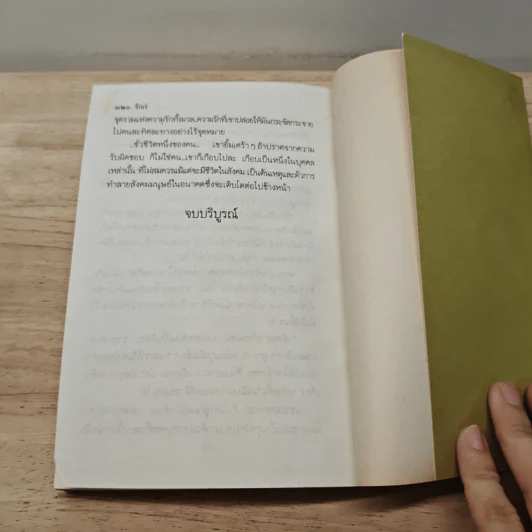 ๑๒๐ รักร์
จุดรวมแห่งความรักทั้งมวล..ความรักที่เขาปล่อยให้มันกระจัดกระจาย
ไปคนละทิศละทางอย่างไร้จุดหมาย
..ชั่วชีวิตหนึ่งของคน.. เขายิ้มเศร้า ๆ ถ้าปราศจากความ
รับผิดชอบ ก็ไม่ใช่คน..เขาก็เกือบไปละ เกือบเป็นหนึ่งในบุคคล
เหล่านั้น ที่ไม่สมควรแม้แต่จะมีชีวิตในสังคม เป็นต้นเหตุและตัวการ
ทำลายสังคมมนุษย์ในอนาคตซึ่งจะเติบโตต่อไปข้างหน้า
จบบริบูรณ์